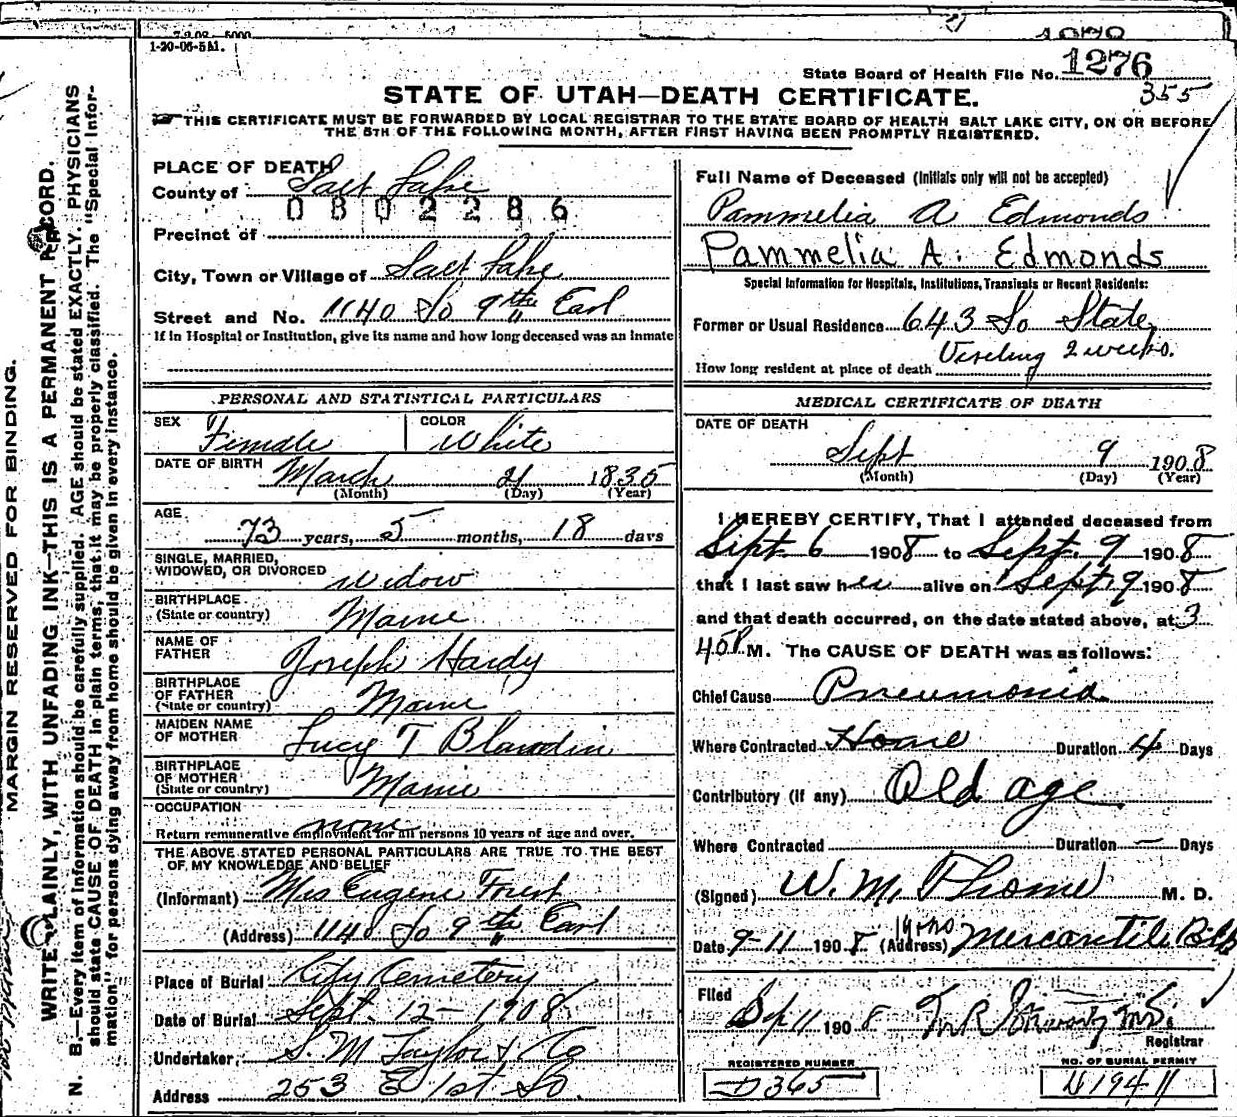 1-20-06-5M.
State Board of Health File No. 1276
355
STATE OF UTAH—DEATH CERTIFICATE.
THIS CERTIFICATE MUST BE FORWARDED BY LOCAL REGISTRAR TO THE STATE BOARD OF HEALTH SALT LAKE CITY, ON OR BEFORE
THE 5TH OF THE FOLLOWING MONTH, AFTER FIRST HAVING BEEN PROMPTLY REGISTERED.
MARGIN RESERVED FOR BINDING.
WRITE PLAINLY, WITH UNFADING INK—THIS IS A PERMANENT RECORD.
N. B.—Every item of Information should be carefully supplied. AGE should be stated EXACTLY. PHYSICIANS
should state CAUSE OF DEATH in plain terms, that it may be properly classified. The "Special Infor-
mation" for persons dying away from home should be given in every instance.
PLACE OF DEATH
County of Salt Lake
0802286
Precinct of
City, Town or Village of Salt Lake
Street and No. 1140 So 9th East
If in Hospital or Institution, give its name and how long deceased was an inmate
PERSONAL AND STATISTICAL PARTICULARS
SEX Female COLOR White
DATE OF BIRTH March 21 1835
(Month) (Day) (Year)
AGE
73 years, 5 months, 18 days
SINGLE, MARRIED,
WIDOWED, OR DIVORCED widow
BIRTHPLACE
(State or country) Maine
NAME OF
FATHER Joseph Hardy
BIRTHPLACE
OF FATHER
(State or country) Maine
MAIDEN NAME
OF MOTHER Lucy T Blandin
BIRTHPLACE
OF MOTHER
(State or country) Maine
OCCUPATION
none
Return remunerative employment for all persons 10 years of age and over.
THE ABOVE STATED PERSONAL PARTICULARS ARE TRUE TO THE BEST
OF MY KNOWLEDGE AND BELIEF
(Informant) Mrs Eugene Forest
(Address) 1140 So 9th East
Place of Burial City Cemetery
Date of Burial Sept. 12— 1908
Undertaker, S. M Taylor & Co
Address 253 E 1st So.
Full Name of Deceased (Initials only will not be accepted)
Pammelia A Edmonds
Pammelia A. Edmonds
Special Information for Hospitals, Institutions, Transients or Recent Residents:
Former or Usual Residence 643 So State
How long resident at place of death Visiting 2 weeks.
MEDICAL CERTIFICATE OF DEATH
DATE OF DEATH
Sept 9 1908
(Month) (Day) (Year)
I HEREBY CERTIFY, That I attended deceased from
Sept. 6 1908 to Sept. 9 1908
that I last saw her alive on Sept 9 1908
and that death occurred, on the date stated above, at 3
45P M. The CAUSE OF DEATH was as follows:
Chief Cause Pneumonia
Where Contracted Home Duration 4 Days
Contributory (if any) Old age
Where Contracted Duration — Days
(Signed) W. M. Thome M. D.
Date 9-11 1908 (Address) Mercantile Blk
Filed
Sep 11 1908
Registrar
REGISTERED NUMBER
D365
NO. OF BURIAL PERMIT